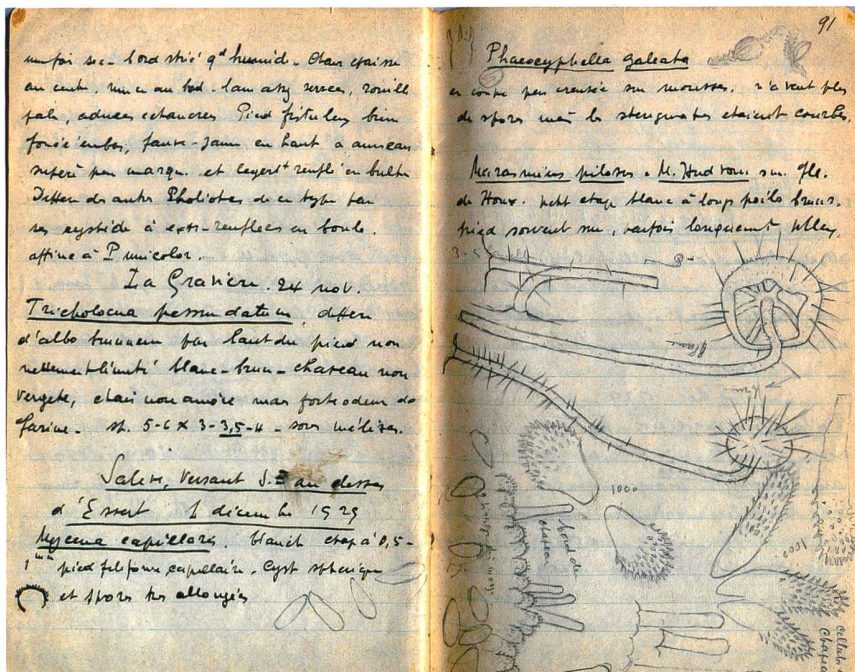 un foi sec - bord strié qd humid - Chair epaisse
au centre, mince au bord - lam assez serrees, rouille
pale, adnees echancrées Pied fistuleux brun
foncé en bas, fauve-jaune en haut a anneau
supere peu marqué. et legert renflé en bulbe
Differe des autres Pholiotes de ce type par
ses cystide à extr-renflees en boule.
affine à P. unicolor.
La Gravière. 24 nov.
Tricholoma pessundatum, differe
d'albo brunneum par haut du pied non
nettement limité blanc-brun - chapeau non
vergeté, chair non amère mas forte odeur de
farine. sp. 5-6 x 3-3,5-4 - sous mélèzes.
Salève, versant S.E au dessus
d'Essert 1 décembre 1929
Mycena capillaris. blanch chap à 0,5-
1mm pied filiforme capillaire. Cyst spherique
et spores tres allongées
91
Phaeocyphella galeata
en coupe peu creusée sur mousses. n'avait plus
de spores mais les sterigmates etaient courbes.
Marasmius pilosus = M. Hudsoni sur fle.
de Houx. petit chap blanc à longs poils bruns.
pied souvent nu, parfois longuement
blanc
brun
1000
bord de
1000
Cellules
Chapeau